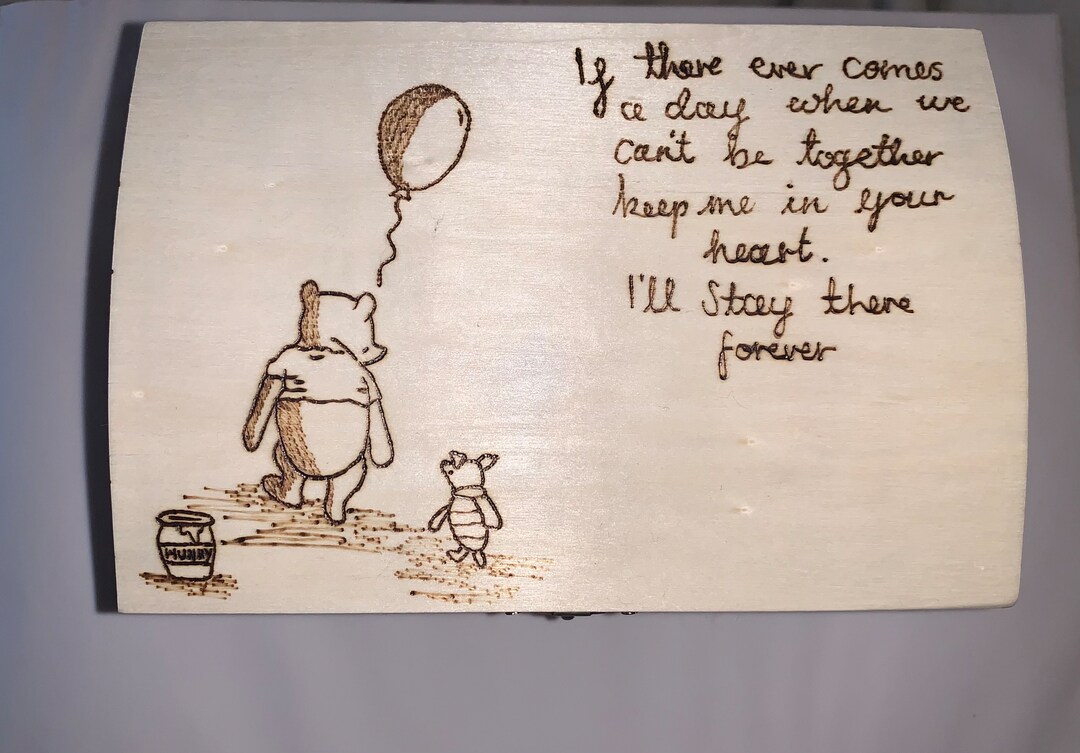 If there ever comes
a day when we
can't be together
keep me in your
heart.
I'll Stay there
forever
HUNNY